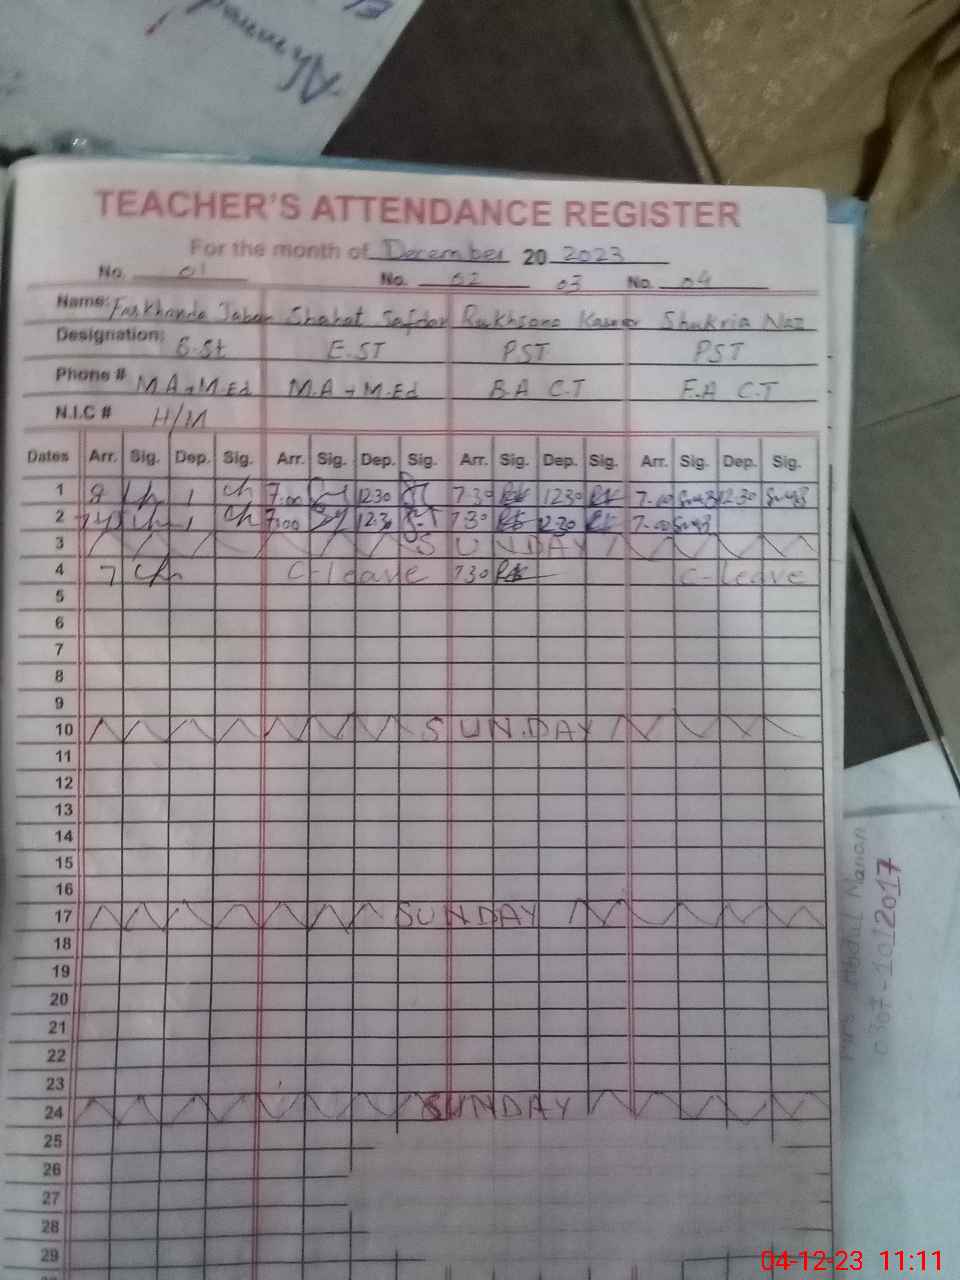 Ahmed
TEACHER'S ATTENDANCE REGISTER
For the month of December 20 2023
No. 01 No. 02 03 No. 04
Name: Farkhanda Jaban Shahat Safdar Rukhsana Kasner Shukria Naz
Designation: S.St E.ST PST PST
Phone # M.A+M.Ed M.A + M.Ed B.A C.T F.A C.T
N.I.C # H/M
Dates Arr. Sig. Dep. Sig. Arr. Sig. Dep. Sig. Arr. Sig. Dep. Sig. Arr. Sig. Dep. Sig.
1 8 1 7:00 12:30 7:30 12:30 7:00 12:30
2 1 7:00 12:30 7:30 12:30 7:00
3 SUNDAY
4 7 C-leave 7:30 C-Leave
5
6
7
8
9
10 SUNDAY
11
12
13
14
15
16
17 SUNDAY
18
19
20
21
22
23
24 SUNDAY
25
26
27
28
29
Mrs Abdul Manan
0307-10/2017
04-12-23 11:11